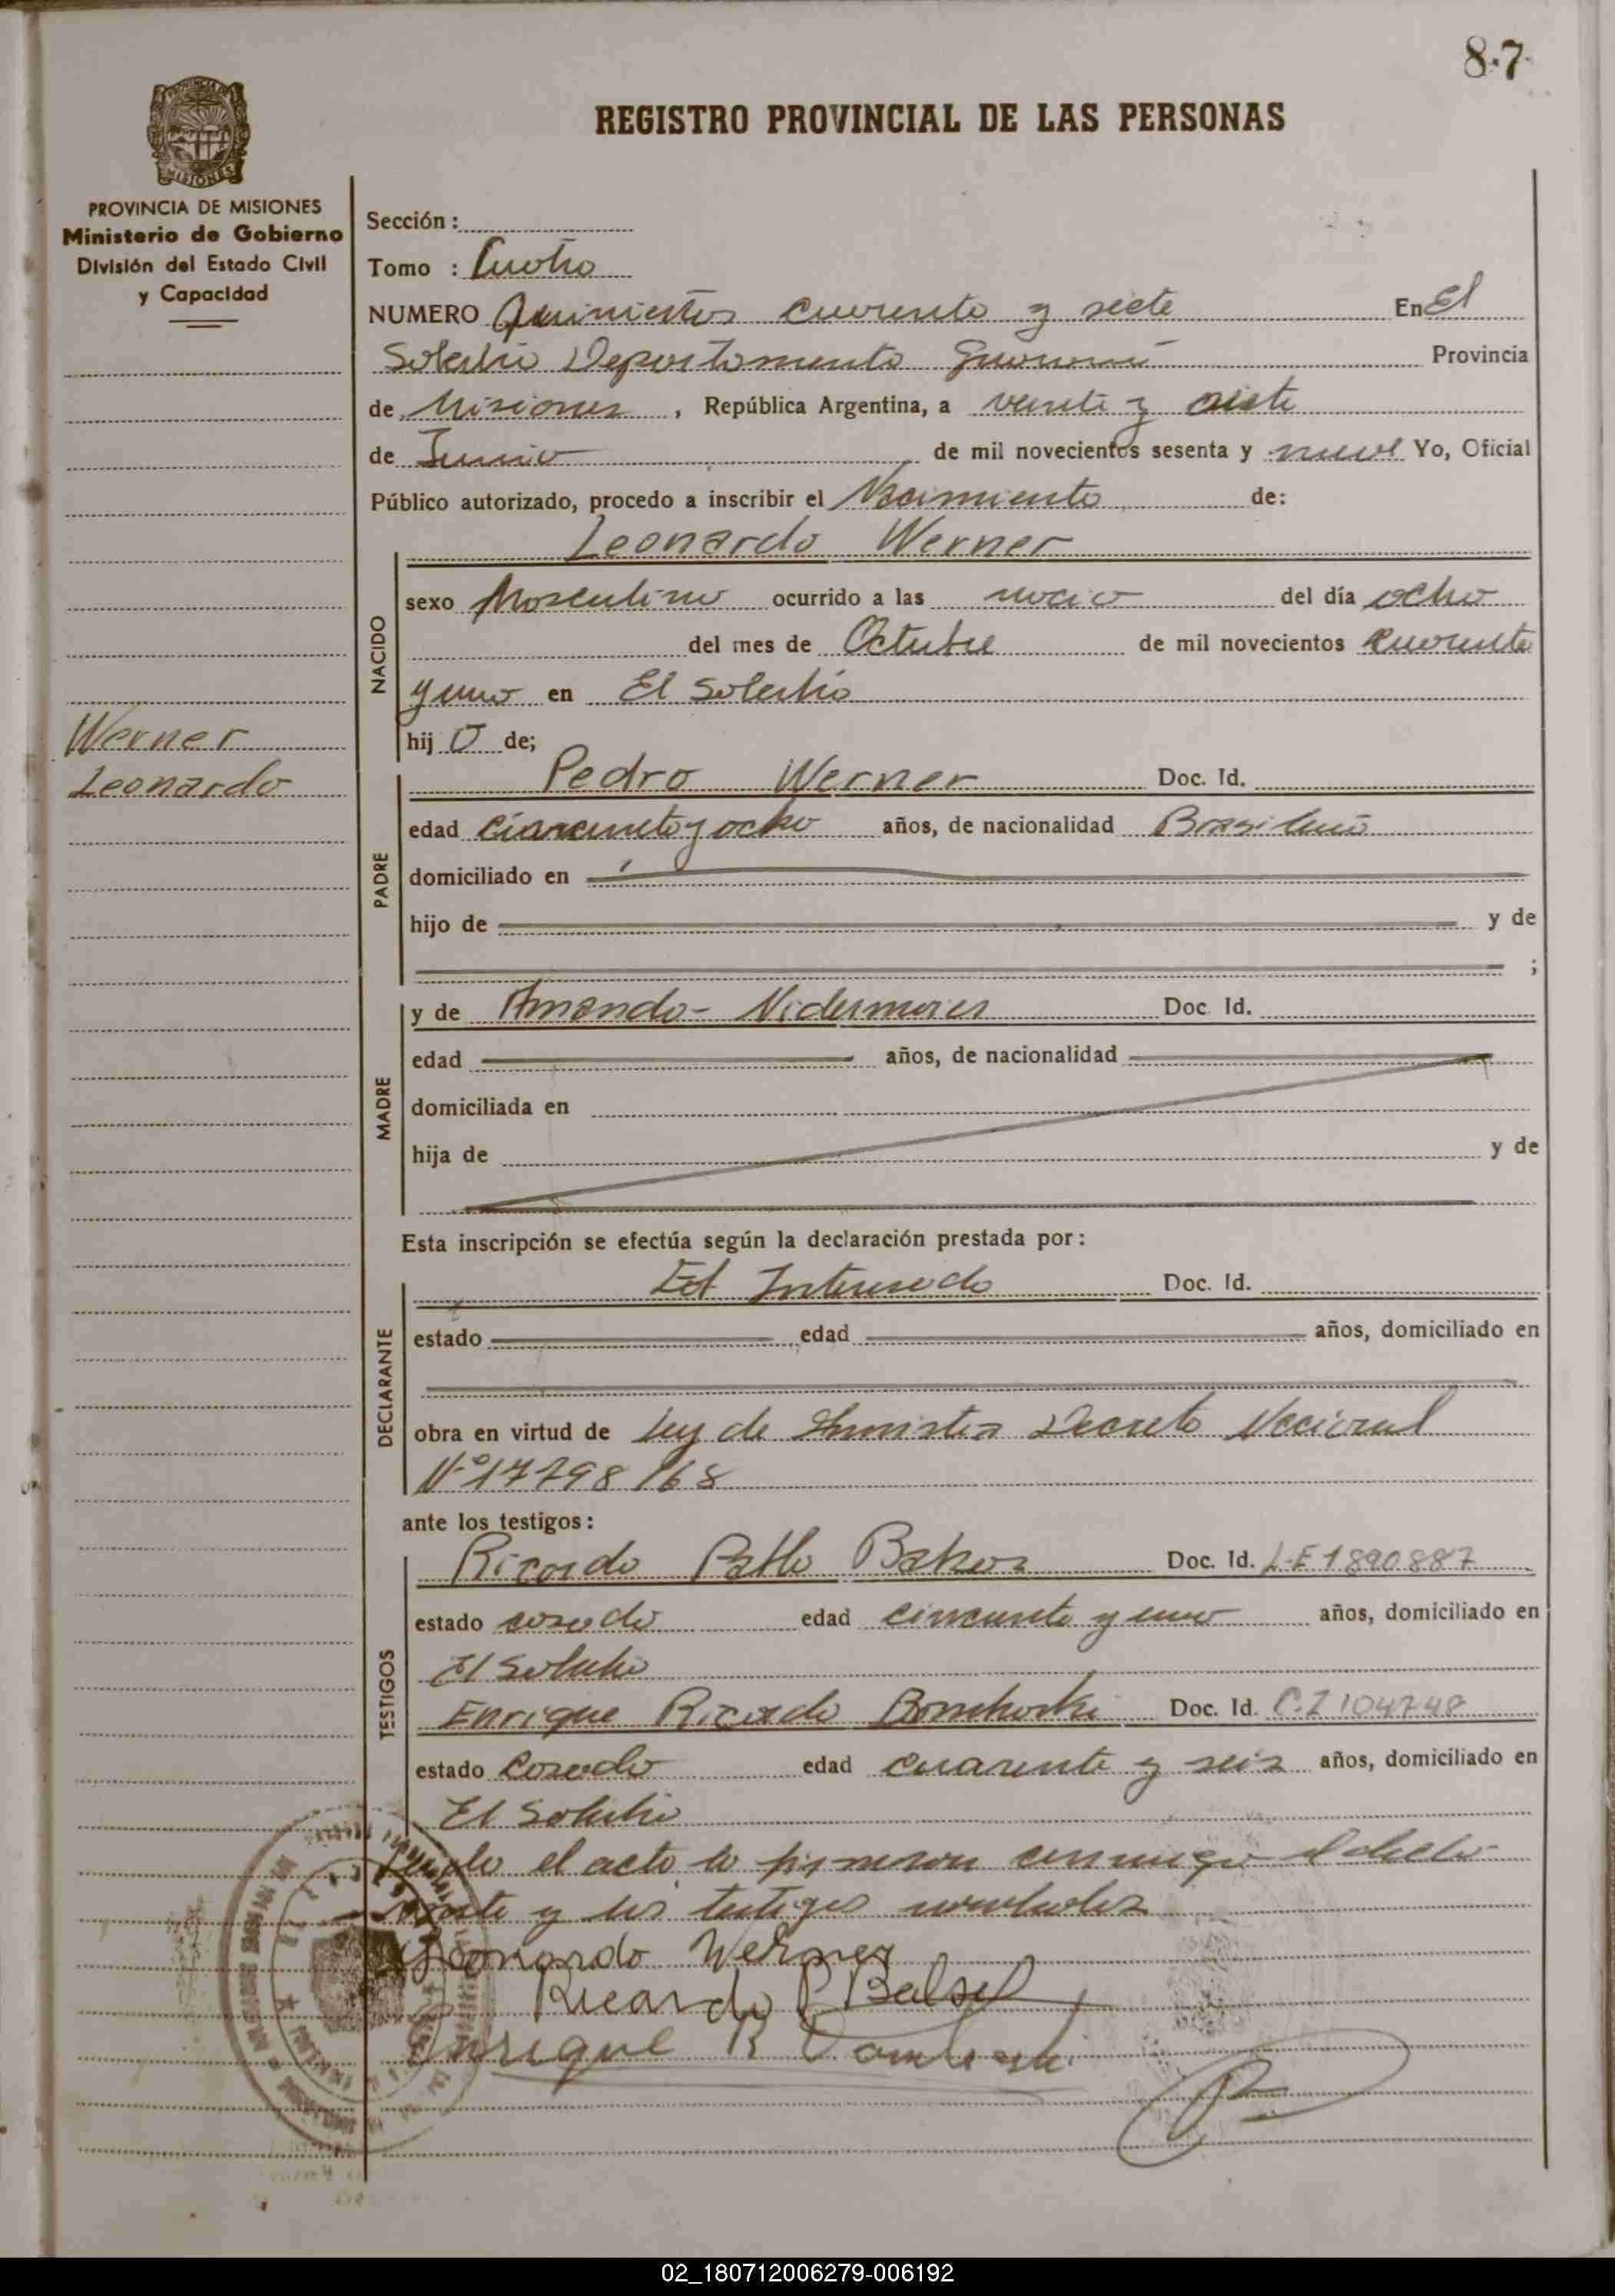 8-7-
REGISTRO PROVINCIAL DE LAS PERSONAS
MISIONES
PROVINCIA DE MISIONES
Ministerio de Gobierno
División del Estado Civil
y Capacidad
Werner
Leonardo
Sección :
Tomo : Cuatro
NUMERO Quinientos cuarenta y siete En El
Soberbio Departamento Guaraní Provincia
de Misiones, República Argentina, a veinte y siete
de Junio de mil novecientos sesenta y nueve Yo, Oficial
Público autorizado, procedo a inscribir el Nacimiento de:
NACIDO
Leonardo Werner
sexo Masculino ocurrido a las del día ocho
del mes de Octubre de mil novecientos Cuarenta
y uno en El Soberbio
hij o de;
PADRE
Pedro Werner Doc. Id.
edad cincuenta y ocho años, de nacionalidad Brasileño
domiciliado en
hijo de y de
;
MADRE
y de Amanda - Nidermaier Doc. Id.
edad años, de nacionalidad
domiciliada en
hija de y de
Esta inscripción se efectúa según la declaración prestada por :
DECLARANTE
El Interesado Doc. Id.
estado edad años, domiciliado en
obra en virtud de Ley de Amnistia Decreto Nacional
N°17798/68
ante los testigos :
TESTIGOS
Ricardo Pablo Doc. Id. L-E 1890887
estado casado edad cincuenta y uno años, domiciliado en
El Soberbio
Enrique Ricardo Doc. Id. C.I 104748
estado Casado edad cuarenta y seis años, domiciliado en
El Soberbio
el acta la firmaron conmigo el decla
rante y los testigos nombrados
Leonardo Werner
Ricardo P
Enrique R
02_180712006279-006192